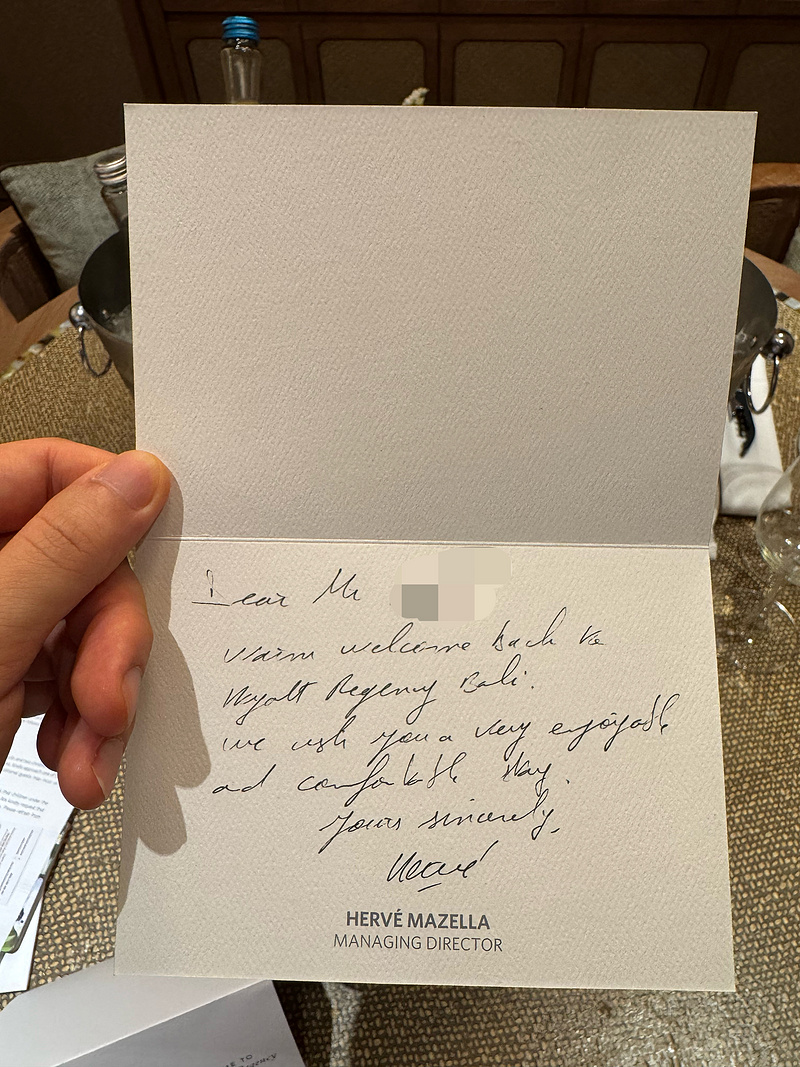 Dear Mr
Warm welcome back to
Hyatt Regency Bali.
we wish you a very enjoyable
and comfortable stay.
Yours sincerely,
Hervé
HERVÉ MAZELLA
MANAGING DIRECTOR
E TO
Regency